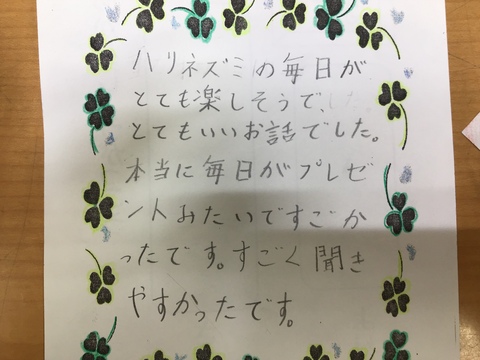 ハリネズミの毎日が
とても楽しそうで、
とてもいいお話でした。
本当に毎日がプレゼ
ントみたいですごか
ったです。すごく聞き
やすかったです。